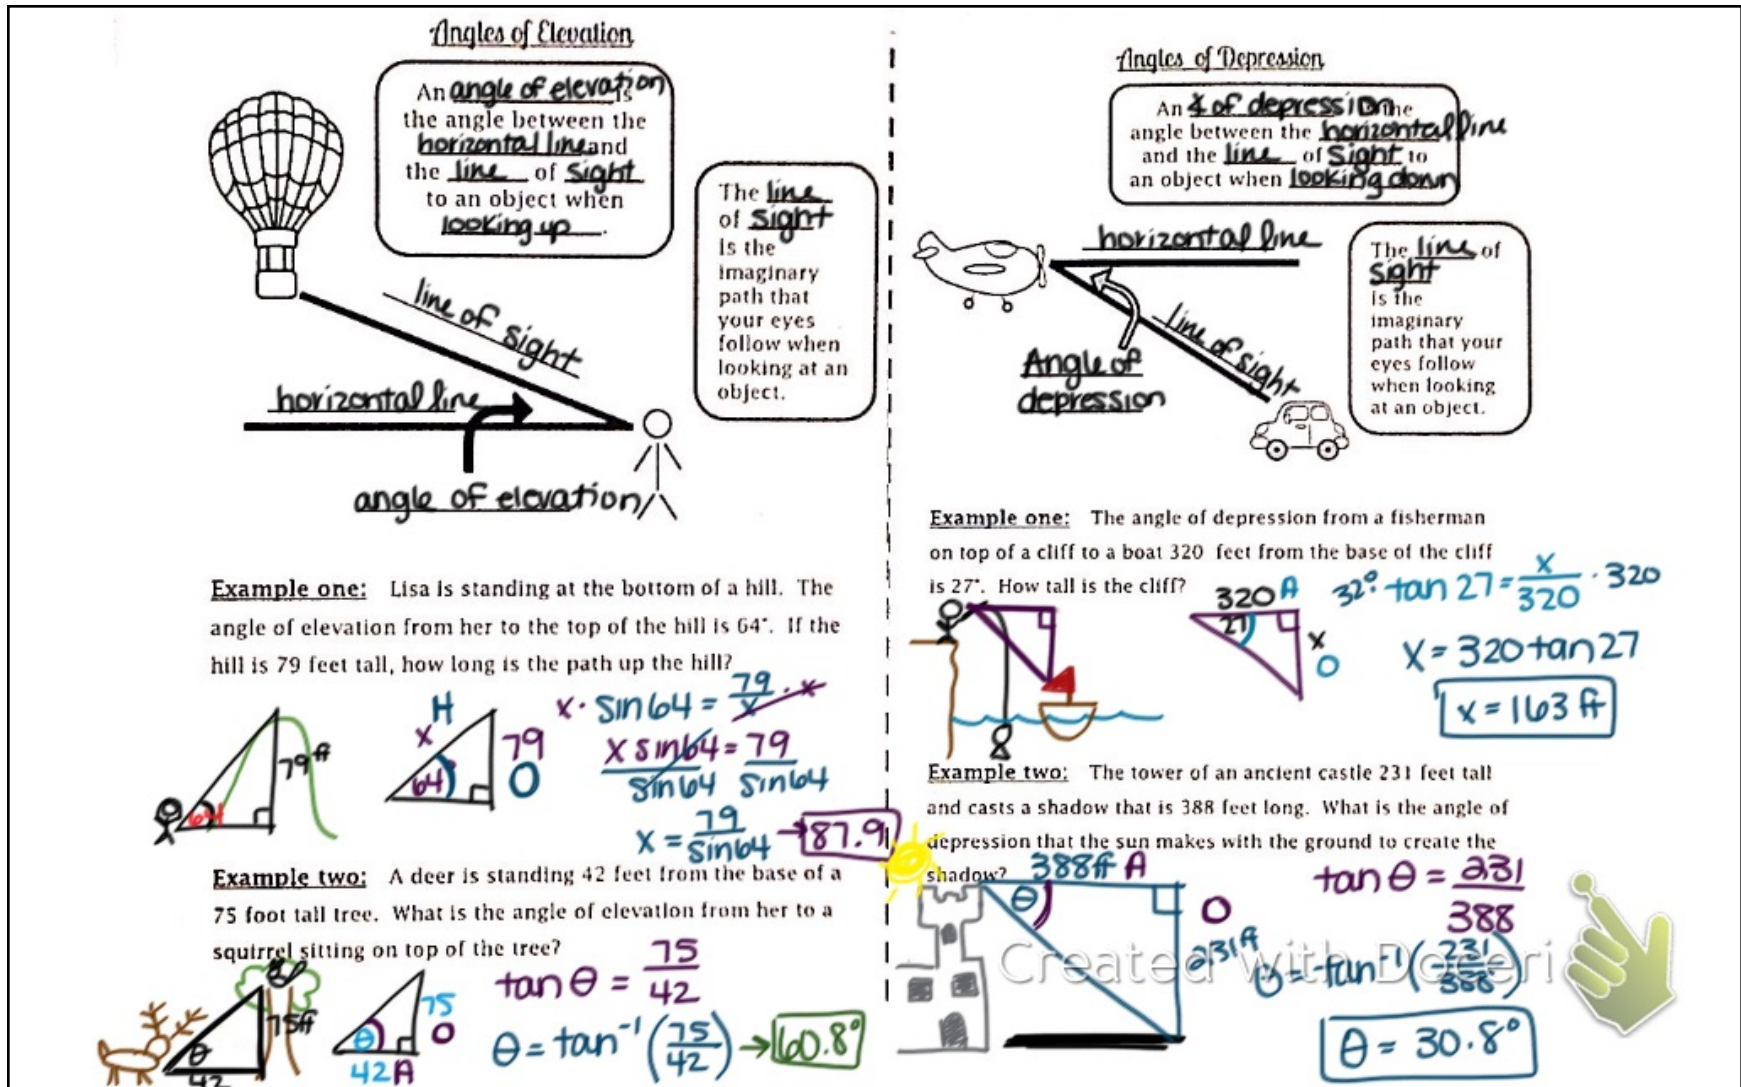 Angles of Elevation
An angle of elevation is
the angle between the
horizontal line and
the line of sight
to an object when
looking up.
The line
of sight
is the
imaginary
path that
your eyes
follow when
looking at an
object.
line of sight
horizontal line
angle of elevation
Example one: Lisa is standing at the bottom of a hill. The
angle of elevation from her to the top of the hill is 64°. If the
hill is 79 feet tall, how long is the path up the hill?
64
79 ft
H
x
64
79
O
x · sin64 = 79/x · x
x sin64/sin64 = 79/sin64
x = 79/sin64 → 87.9
Example two: A deer is standing 42 feet from the base of a
75 foot tall tree. What is the angle of elevation from her to a
squirrel sitting on top of the tree?
75ft
θ
42
75
O
θ
42 A
tan θ = 75/42
θ = tan⁻¹(75/42) → 60.8°
Angles of Depression
An ∡ of depression is the
angle between the horizontal line
and the line of sight to
an object when looking down
horizontal line
The line of
sight
is the
imaginary
path that your
eyes follow
when looking
at an object.
line of sight
Angle of
depression
Example one: The angle of depression from a fisherman
on top of a cliff to a boat 320 feet from the base of the cliff
is 27°. How tall is the cliff?
320 A
27
x
O
32° tan 27 = x/320 · 320
x = 320 tan 27
x = 163 ft
Example two: The tower of an ancient castle 231 feet tall
and casts a shadow that is 388 feet long. What is the angle of
depression that the sun makes with the ground to create the
shadow?
388ft A
θ
O
231ft
tan θ = 231/388
θ = tan⁻¹(231/388)
θ = 30.8°
Created with Doceri